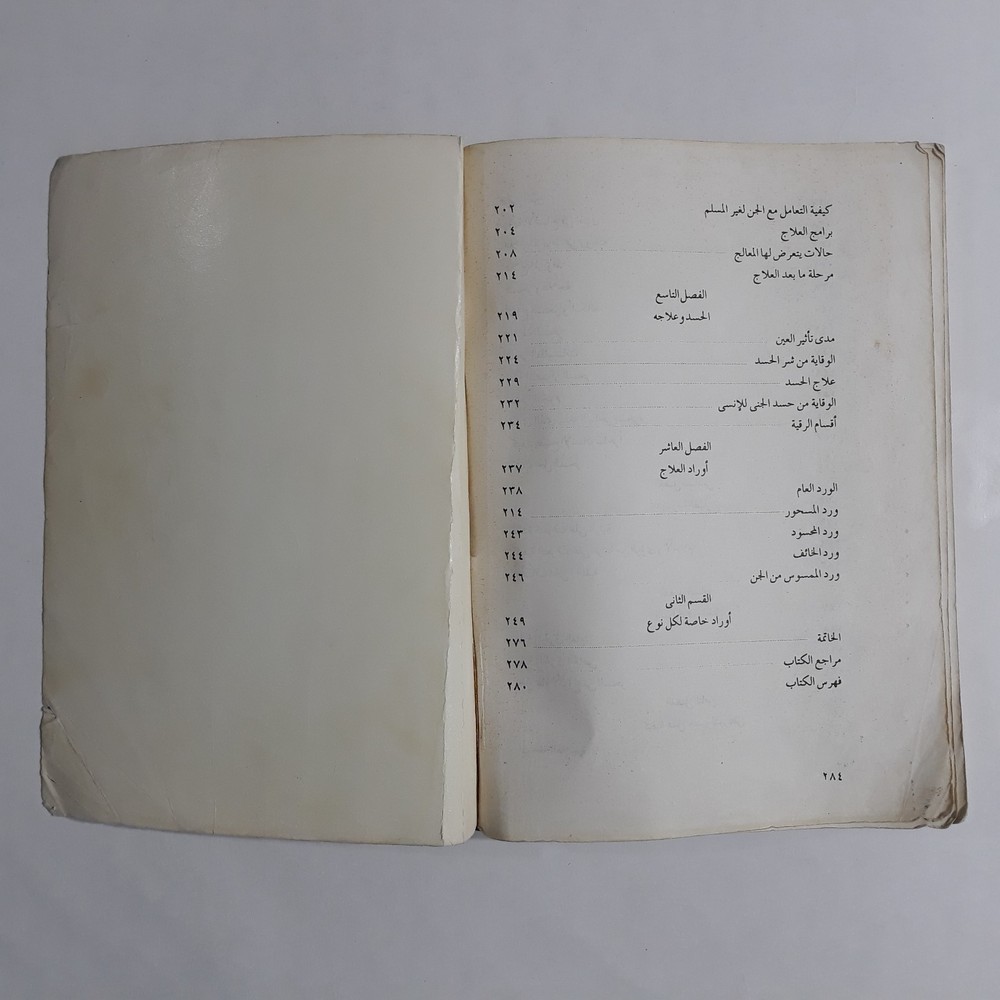 كيفية التعامل مع الجن لغير المسلم ٢٠٢
برامج العلاج ٢٠٤
حالات يتعرض لها المعالج ٢٠٨
مرحلة ما بعد العلاج ٢١٤
الفصل التاسع
الحسد وعلاجه ٢١٩
مدى تأثير العين ٢٢١
الوقاية من شر الحسد ٢٢٤
علاج الحسد ٢٢٩
الوقاية من حسد الجنى للإنسى ٢٣٢
أقسام الرقية ٢٣٤
الفصل العاشر
أوراد العلاج ٢٣٧
الورد العام ٢٣٨
ورد المسحور ٢١٤
ورد المحسود ٢٤٣
ورد الخائف ٢٤٤
ورد الممسوس من الجن ٢٤٦
القسم الثانى
أوراد خاصة لكل نوع ٢٤٩
الخاتمة ٢٧٦
مراجع الكتاب ٢٧٨
فهرس الكتاب ٢٨٠
٢٨٤